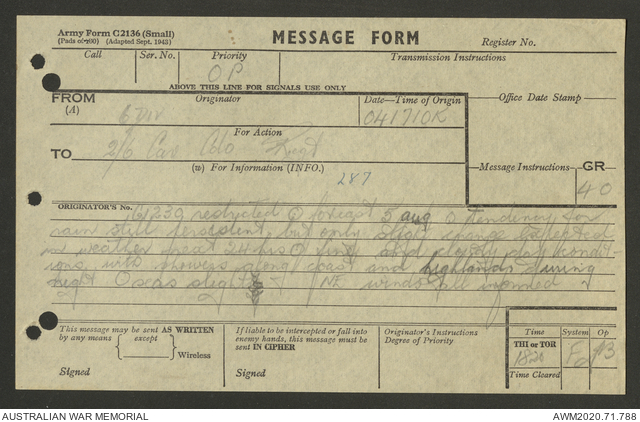 Army Form C2136 (Small)
(Pads of 100) (Adapted Sept. 1942)
MESSAGE FORM
Register No.
Call Ser. No. Priority Transmission Instructions
OP
ABOVE THIS LINE FOR SIGNALS USE ONLY
FROM Originator Date—Time of Origin Office Date Stamp
(A) 6 Div 041710K
For Action
TO 2/6 Cav Cdo Regt
(w) For Information (INFO.) Message Instructions GR
287 40
ORIGINATOR'S No.
G1239 restricted O forecast 5 aug O tendency for
rain still persistent but only slight change expected
in weather next 24 hrs O and cloudy day condit-
ions with showers along coast and highlands during
night O seas slight NE winds all informed
This message may be sent AS WRITTEN
by any means except
Wireless
Signed
If liable to be intercepted or fall into
enemy hands, this message must be
sent IN CIPHER
Signed
Originator's Instructions
Degree of Priority
Time System Op
THI or TOR
1820
Time Cleared
AUSTRALIAN WAR MEMORIAL AWM2020.71.788